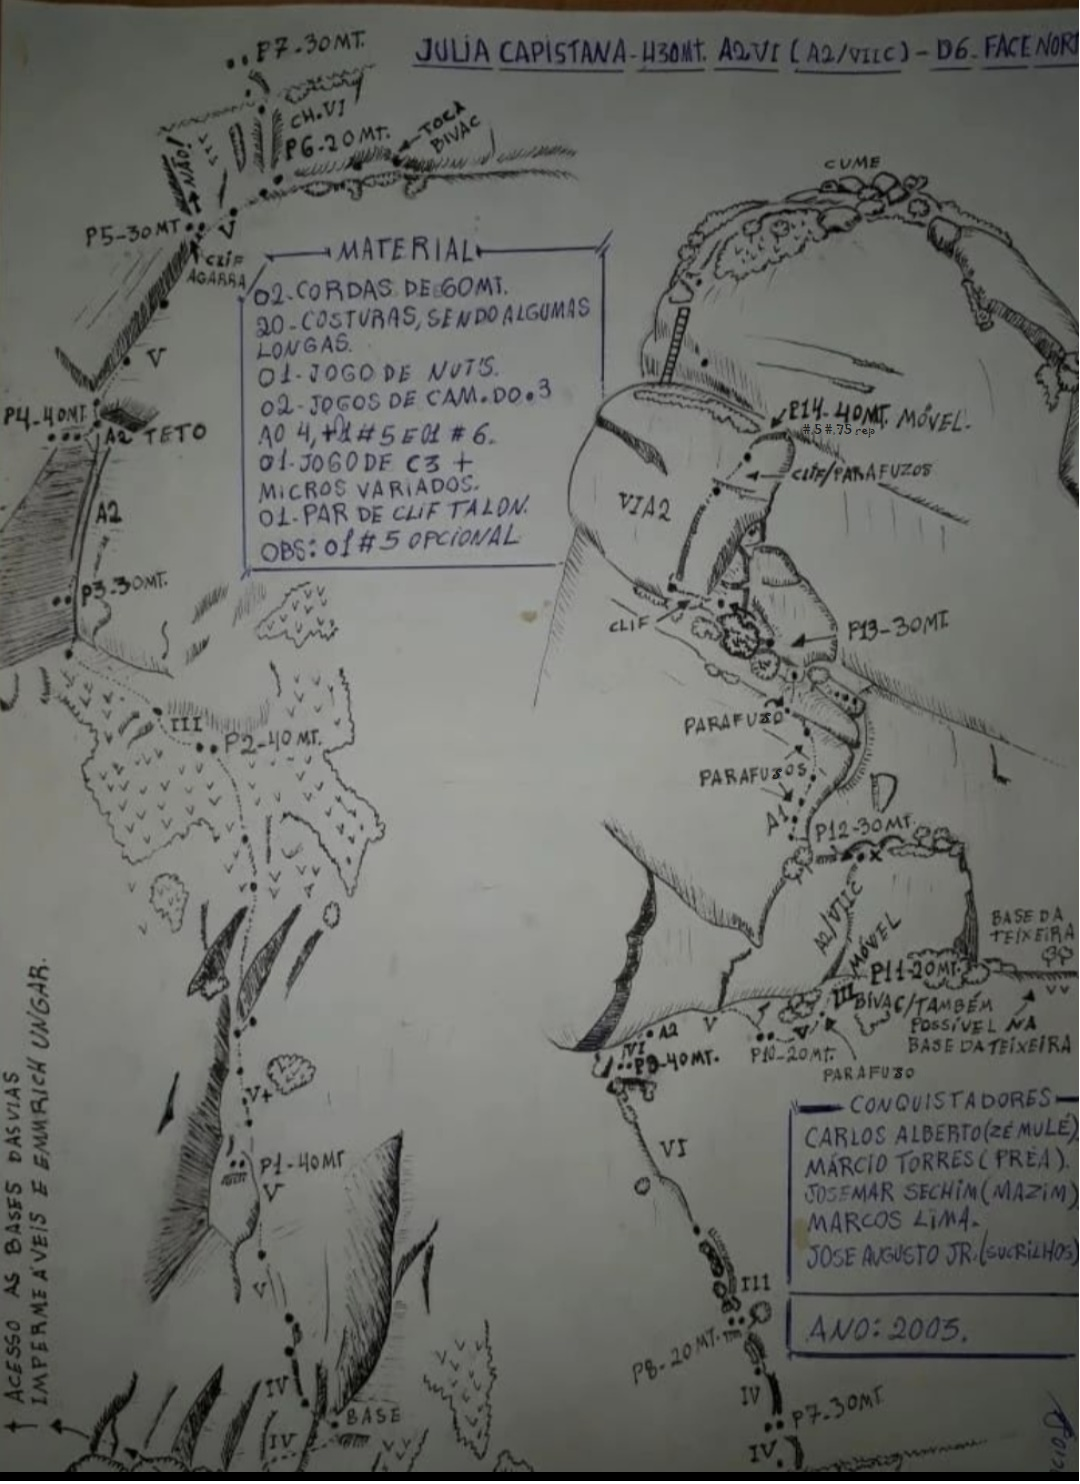 JULIA CAPISTANA-430MT. A2.VI (A2/VIIC) - D6. FACE NORT
P7-30MT.
CH.VI
P6-20MT.
TOCA
BIVAC
NÃO!
P5-30MT
V
CLIF
AGARRA
V
P4-40MT.
A2 TETO
A2
P3-30MT.
III
P2-40MT.
V+
P1-40MT
V
V
IV
IV
BASE
ACESSO AS BASES DAS VIAS
IMPERMEAVEIS E EMMRICH UNGAR.
MATERIAL
02-CORDAS DE 60MT.
20-COSTURAS, SENDO ALGUMAS
LONGAS.
01-JOGO DE NUTS.
02-JOGOS DE CAM. DO .3
AO 4, +1 #5 E 01 #6.
01-JOGO DE C3 +
MICROS VARIADOS.
01-PAR DE CLIF TALON.
OBS: 01 #5 OPCIONAL
CUME
P14-40MT. MÓVEL.
#.5 #.75 rejo
CLIF/PARAFUZOS
VIA2
CLIF
P13-30MT
PARAFUZO
PARAFUZOS
A1
P12-30MT.
X
A2/VIIC
MÓVEL
BASE DA
TEIXEIRA
P11-20MT.
III
BIVAC/TAMBÉM
POSSÍVEL NA
BASE DA TEIXEIRA
A2
V
V
VI
P9-40MT.
P10-20MT.
PARAFUSO
VI
III
P8-20MT.
IV
P7-30MT
IV
CONQUISTADORES
CARLOS ALBERTO(ZÉ MULÉ)
MÁRCIO TORRES(PREÁ).
JOSEMAR SECHIM(MAZIM)
MARCOS LIMA.
JOSE AUGUSTO JR.(SUCRILHOS)
ANO: 2005.